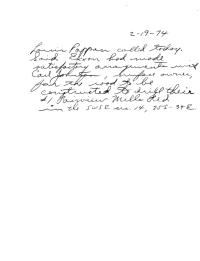 2-19-74
Lorin Pappan called today.
Said Exxon had made
satisfactory arrangements with
Carl Johnston, surface owner,
for the road to be
constructed to drill their
#1 Fairview Mills Fed
in the SWSE sec. 14, 25S-37E